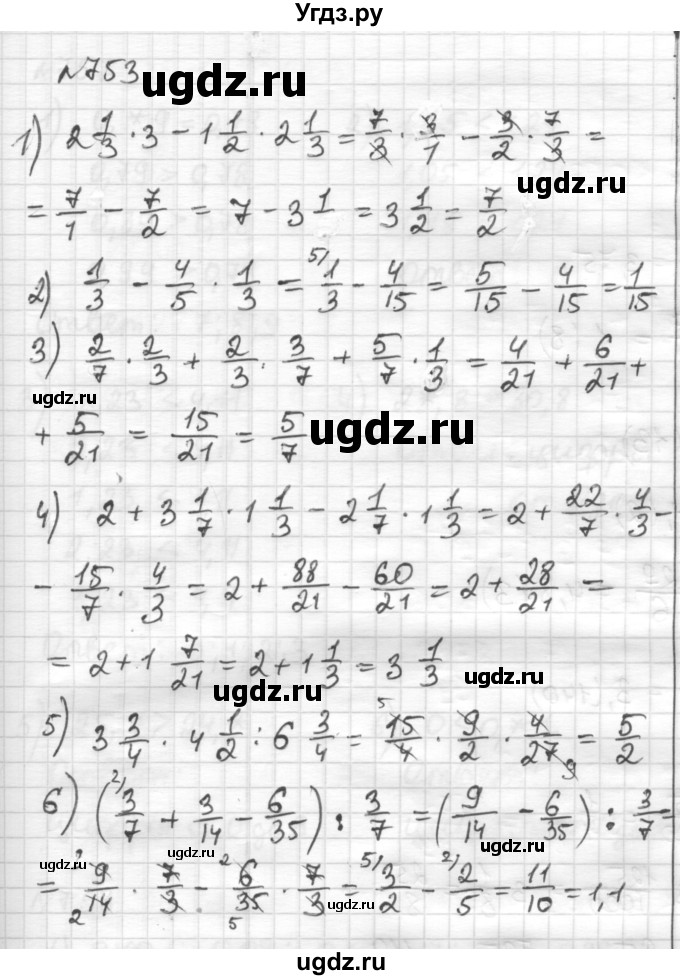 Угдз.ру
№753
ugdz.ru
1) 2 1/3 · 3 − 1 1/2 · 2 1/3 = 7/3 · 3/1 − 3/2 · 7/3 =
ugdz.ru
= 7/1 − 7/2 = 7 − 3 1 = 3 1/2 = 7/2
2) 1/3 − 4/5 · 1/3 = 5) 1/3 − 4/15 = 5/15 − 4/15 = 1/15
3) 2/7 · 2/3 + 2/3 · 3/7 + 5/7 · 1/3 = 4/21 + 6/21 +
ugdz.ru
+ 5/21 = 15/21 = 5/7
ugdz.ru
4) 2 + 3 1/7 · 1 1/3 − 2 1/7 · 1 1/3 = 2 + 22/7 · 4/3 −
− 15/7 · 4/3 = 2 + 88/21 − 60/21 = 2 + 28/21 =
= 2 + 1 7/21 = 2 + 1 1/3 = 3 1/3
ugdz.ru
ugdz.ru
5) 3 3/4 · 4 1/2 : 6 3/4 = 5 15/4 · 9/2 · 4/27 9 = 5/2
6) (2) 3/7 + 3/14 − 6/35) : 3/7 = (9/14 − 6/35) : 3/7 =
ugdz.ru
ugdz.ru
ugdz.ru
= 9/14 2 · 7/3 − 2 6/35 5 · 7/3 = 5) 3/2 − 2) 2/5 = 11/10 = 1,1
ugdz.ru
ugdz.ru
ugdz.ru